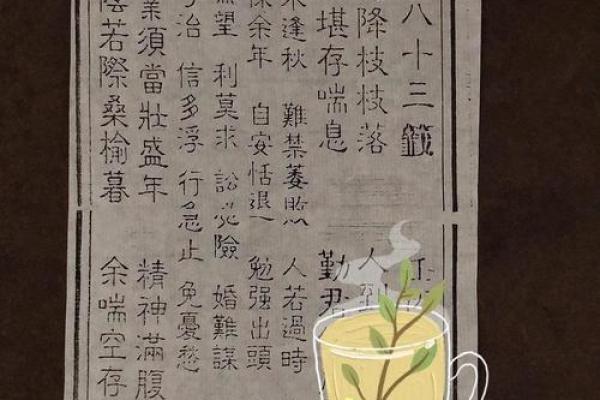 八十三籤
降枝枝落 人到
堪存喘息 勤君
逢秋 難禁萎敗 人若過時
余年 自安恬退 勉强出頭
望 利莫求 訟必險 婚難謀
治 信多浮 行急止 免憂愁
業須當壯盛年 精神滿腹
陰若際桑榆暮 余喘空存